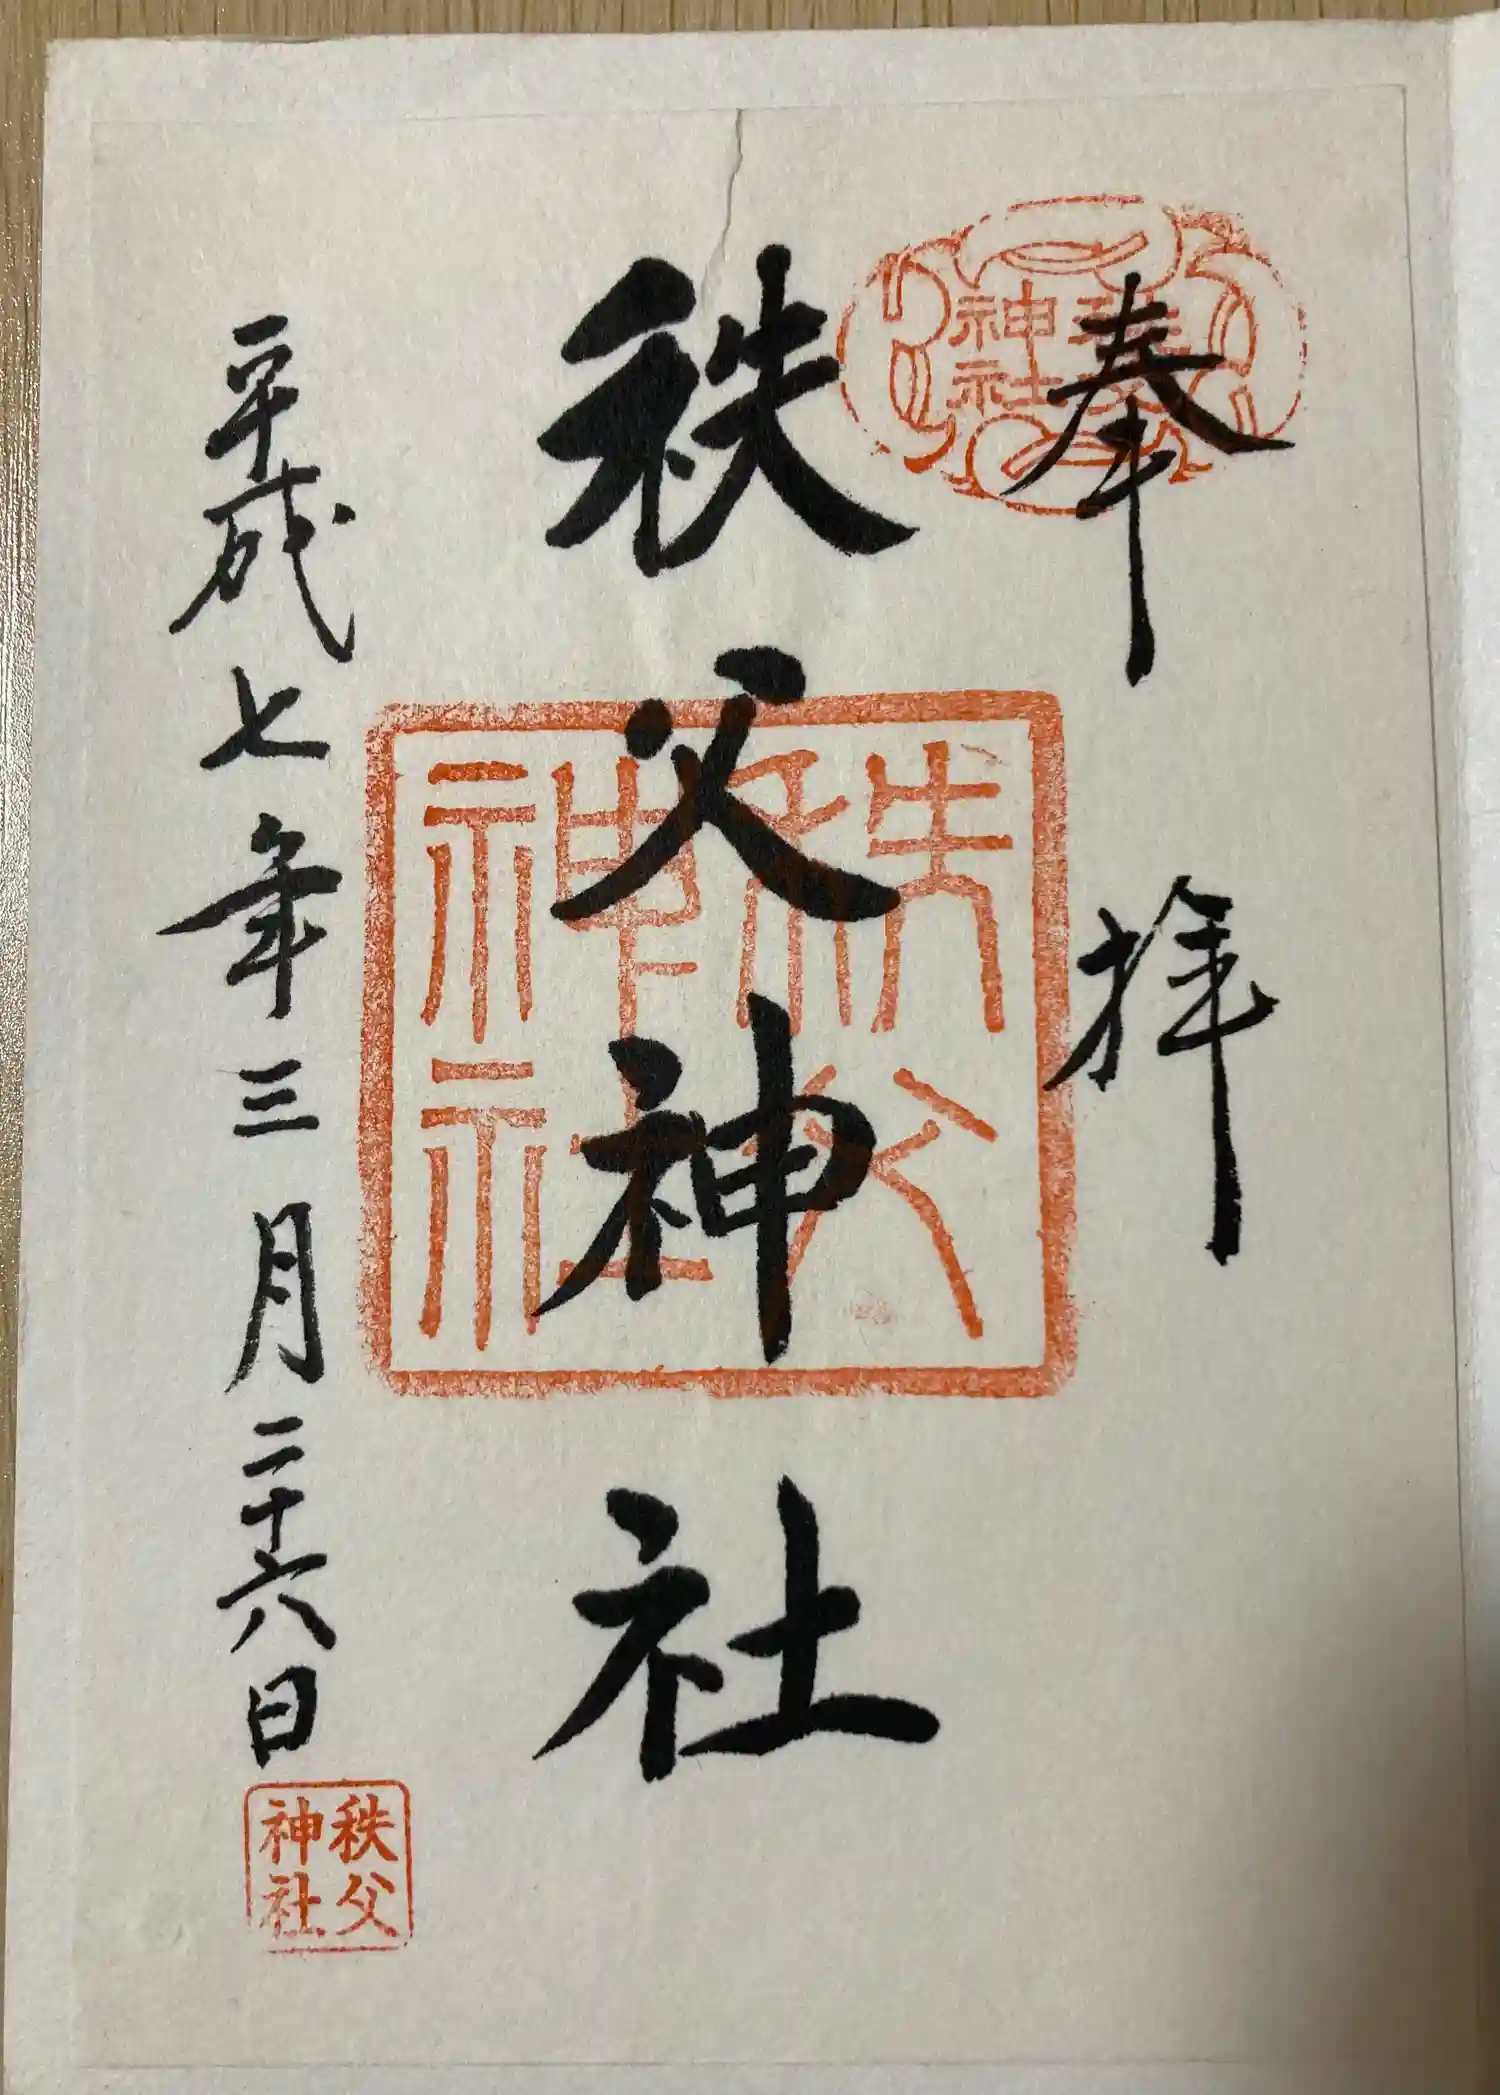 奉拝
秩父神社
秩父神社
秩父神社
平成七年三月二十六日
秩父神社